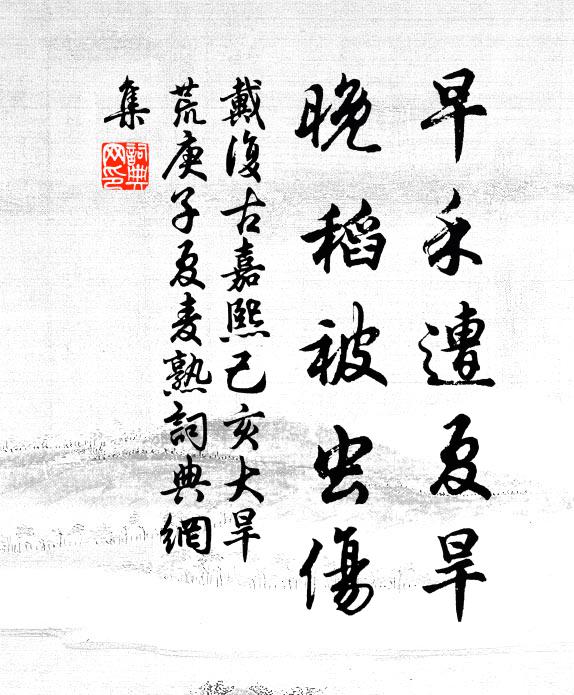 早禾遭夏旱
晚稻被虫傷
戴復古嘉熙己亥大旱
荒庚子夏麦熟詞典網
集
詞典
网印